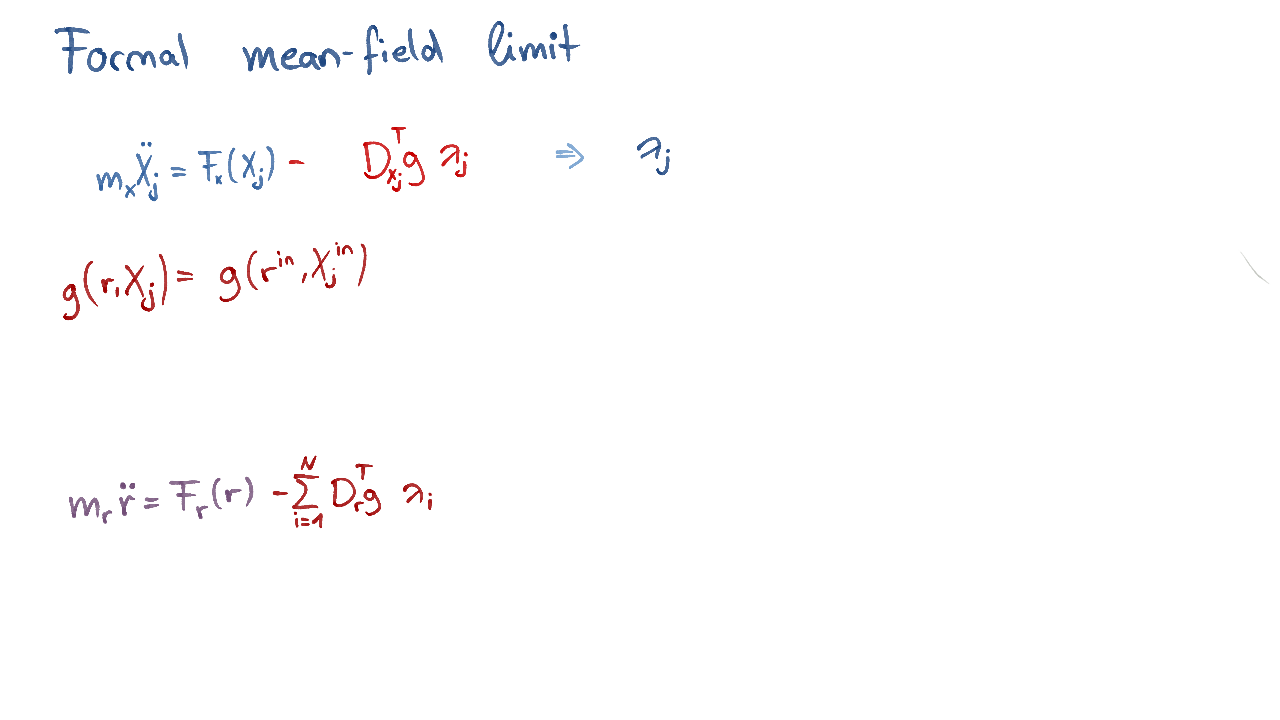 Formal mean-field limit
mₓẌⱼ = Fₓ(Xⱼ) - D^T_{Xⱼ}g λⱼ ⇒ λⱼ
g(r, Xⱼ) = g(r^{in}, Xⱼ^{in})
m_r r̈ = F_r(r) - ∑_{i=1}^{N} D_r^T g λ_i